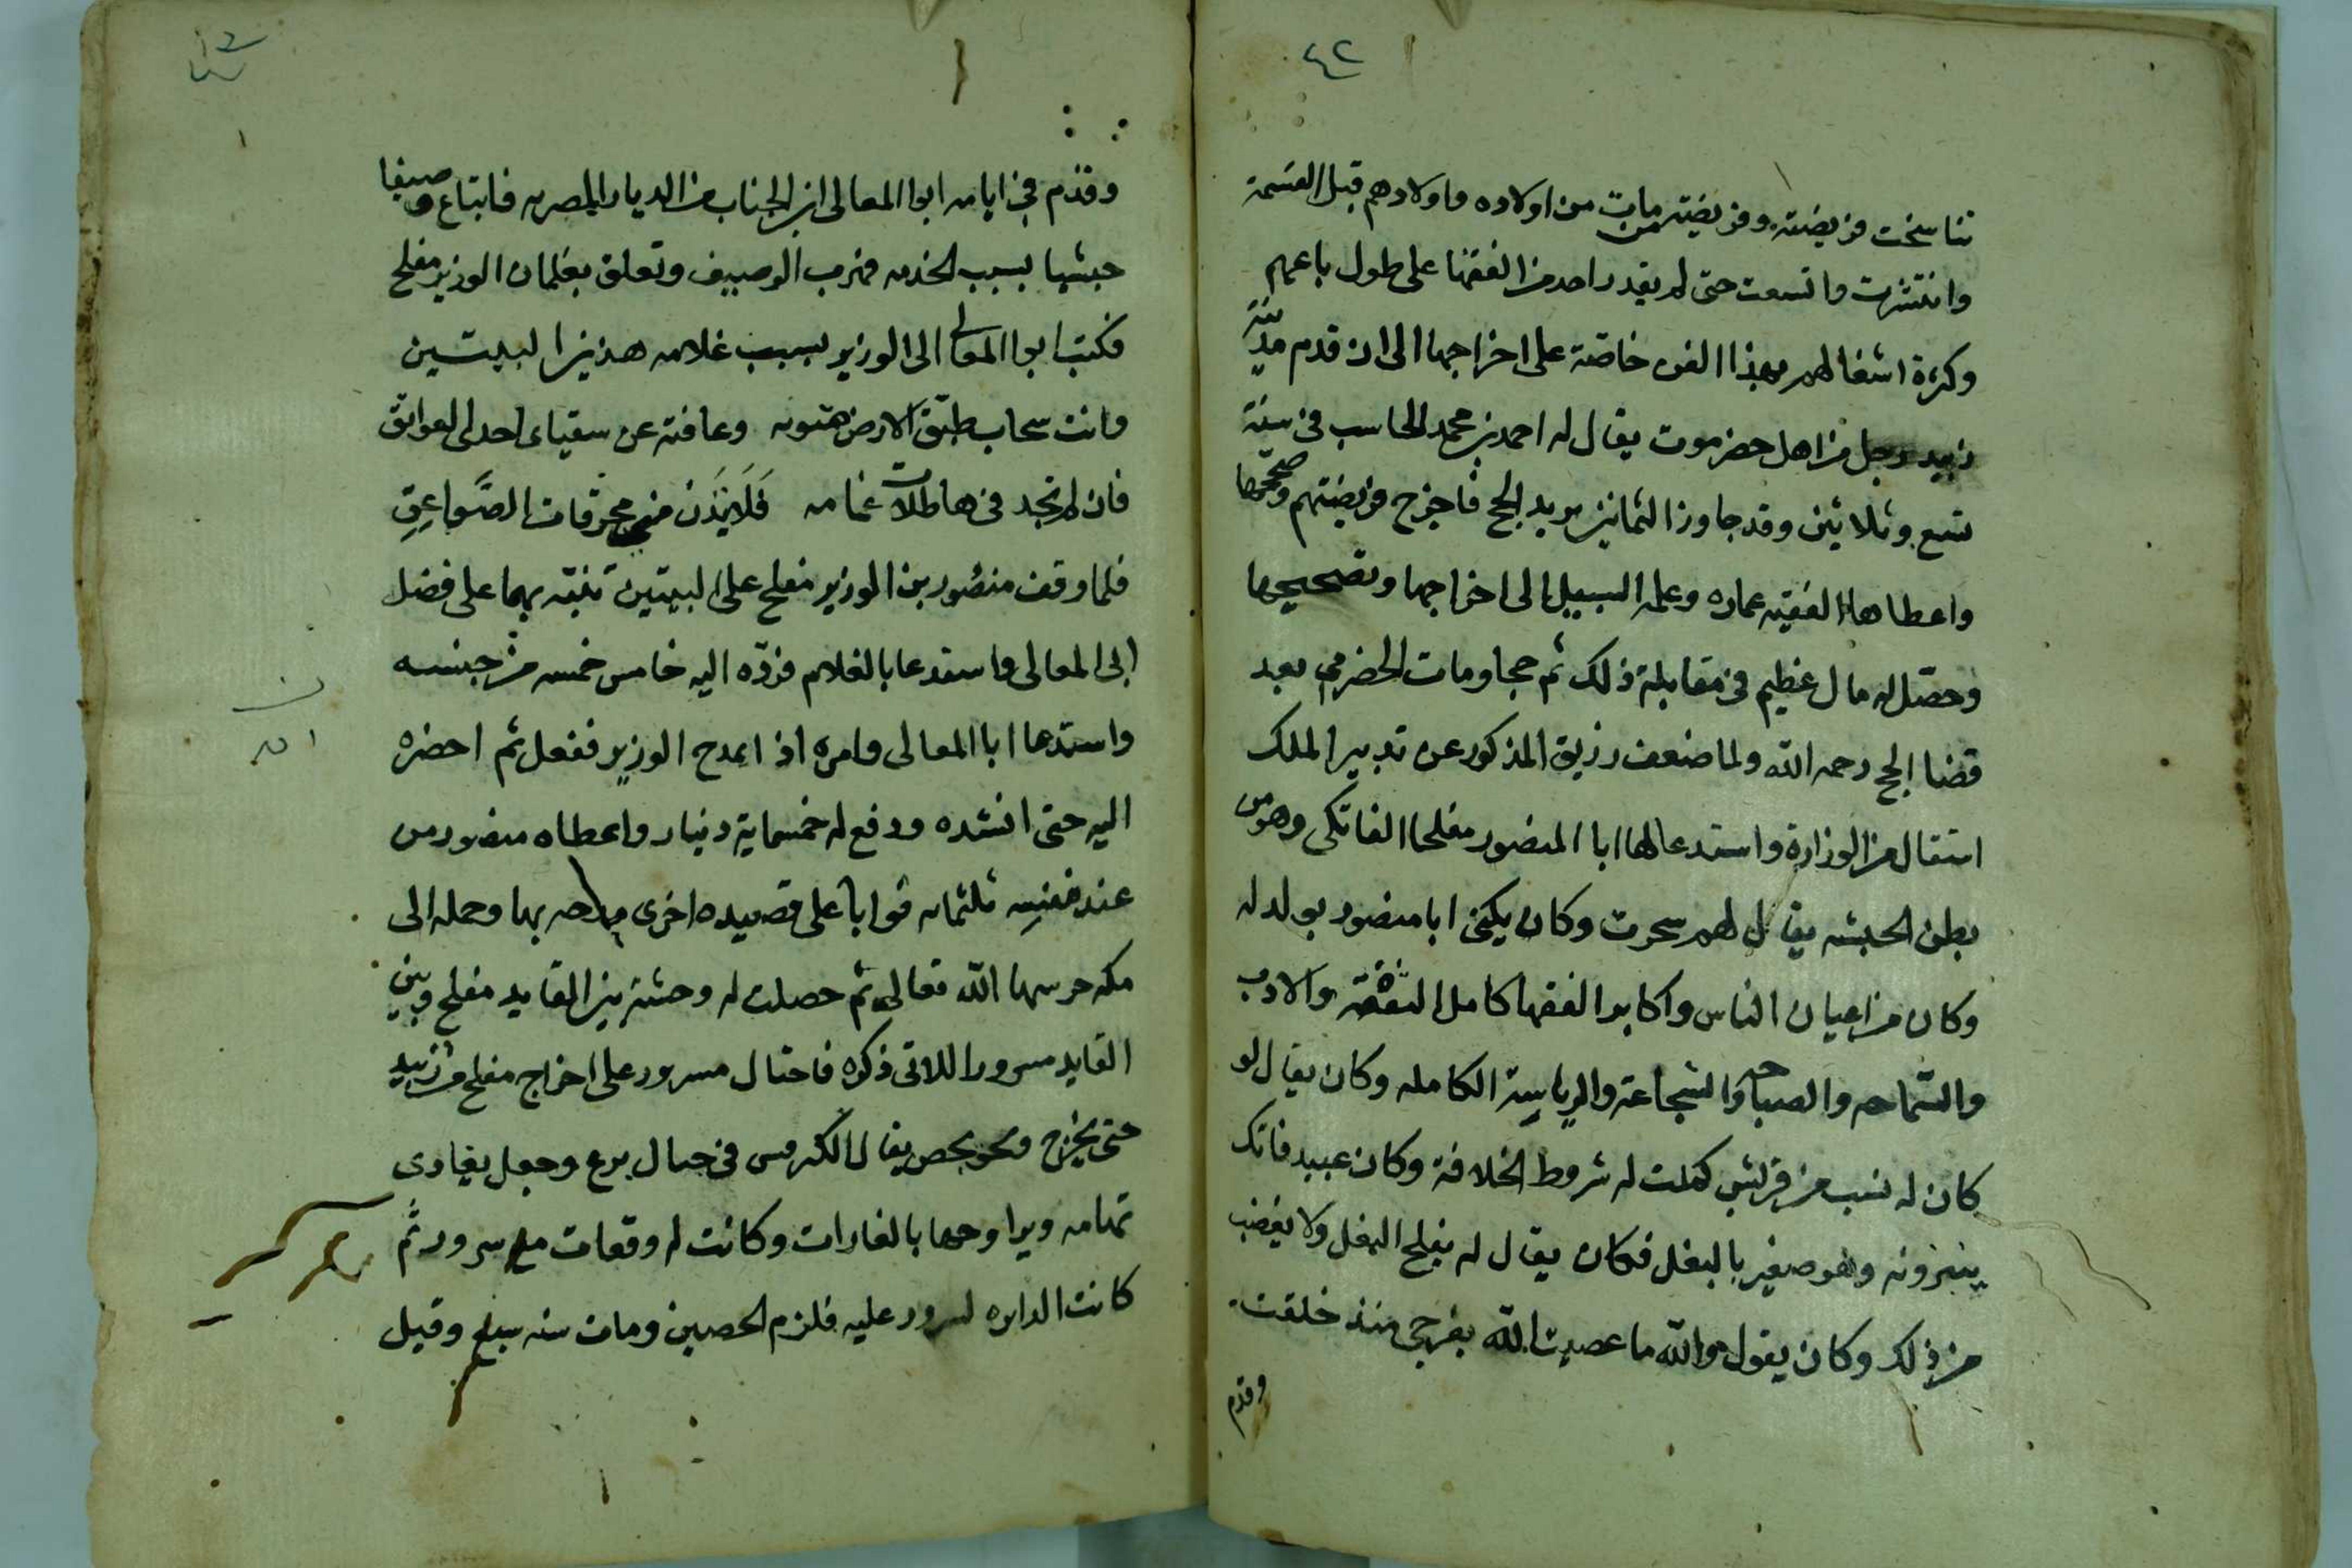 ٤٢
تناسخت فريضته وفريضة من مات من اولاده واولادهم قبل القسمة
وانتشرت واتسعت حتى لم يقدر احد من الفقها على طول باعهم
وكثرة اشغالهم بهذا الفن خاصة على اخراجها الى ان قدم مدينة
زبيد رجل من اهل حضرموت يقال له احمد بن محمد الحاسب في سنة
تسع وثلاثين وقد جاوز الثمانين يريد الحج فاخرج فريضتهم وصححها
واعطاها الفقيه عماره وعلمه السبيل الى اخراجها وتصحيحها
وحصل له مال عظيم في مقابلة ذلك ثم حجا ومات الحضرمي بعد
قضا الحج رحمه الله ولما ضعف رزيق المذكور عن تدبير الملك
استقال من الوزارة واستدعا لها ابا المنصور مفلحا الفاتكي وهو من
بطن الحبشه يقال لهم سحرت وكان يكنى ابا منصور بولد له
وكان من اعيان الناس واكابر الفقها كامل الثقة والادب
والسماحه والصباحه والشجاعة والرياسة الكامله وكان يقال لو
كان له نسب من قريش كملت له شروط الخلافة وكان عبيد فاتك
ينبزونه وهو صغير بالبغل فكان يقال له مفلح البغل ولا يغضب
من ذلك وكان يقول والله ما عصيت الله بفرجي منذ خلقت
وقدم
وقدم في ايامه ابوا المعالى ابن الجناب من الديار المصريه فابتاع وصيفا
حبشيا بسبب الخدمه فهرب الوصيف وتعلق بغلمان الوزير مفلح
فكتب ابوا المعالى الى الوزير بسبب غلامه هذين البيتين
وانت سحاب طبق الارض هتونه وعافته عن سقياى احدى العوائق
فان لم تجد في هاطلات غمامه فَلَا يَنْدَن منه محرقات الصَّواعِقِ
فلما وقف منصور بن الوزير مفلح على البيتين تنبّه بهما على فضل
ابى المعالى واستدعا بالغلام فردّه اليه خامس خمسه من جنسه
واستدعا ابا المعالى وامره اذ ايمدح الوزير ففعل ثم احضره
اليه حتى انشده ودفع له خمسماية دينار واعطاه منصور من
عند نفسِه ثلثمايه ثوابا على قصيده اخرى مدحه بها وحمله الى
مكه حرسها الله تعالى ثم حصلت له وحشة بين القايد مفلح وبين
القايد مسرور اللاتى ذكره فاحتال مسرور على اخراج مفلح من زبيد
حتى يخرج ونحو بحصن يقال الكرمس في جبال برع وجعل يغادى
تهامه ويراوحها بالغارات وكانت له وقعات مع سرور ثم
كانت الدايره لسرور عليه فلزم الحصين ومات سنه سبع وقيل